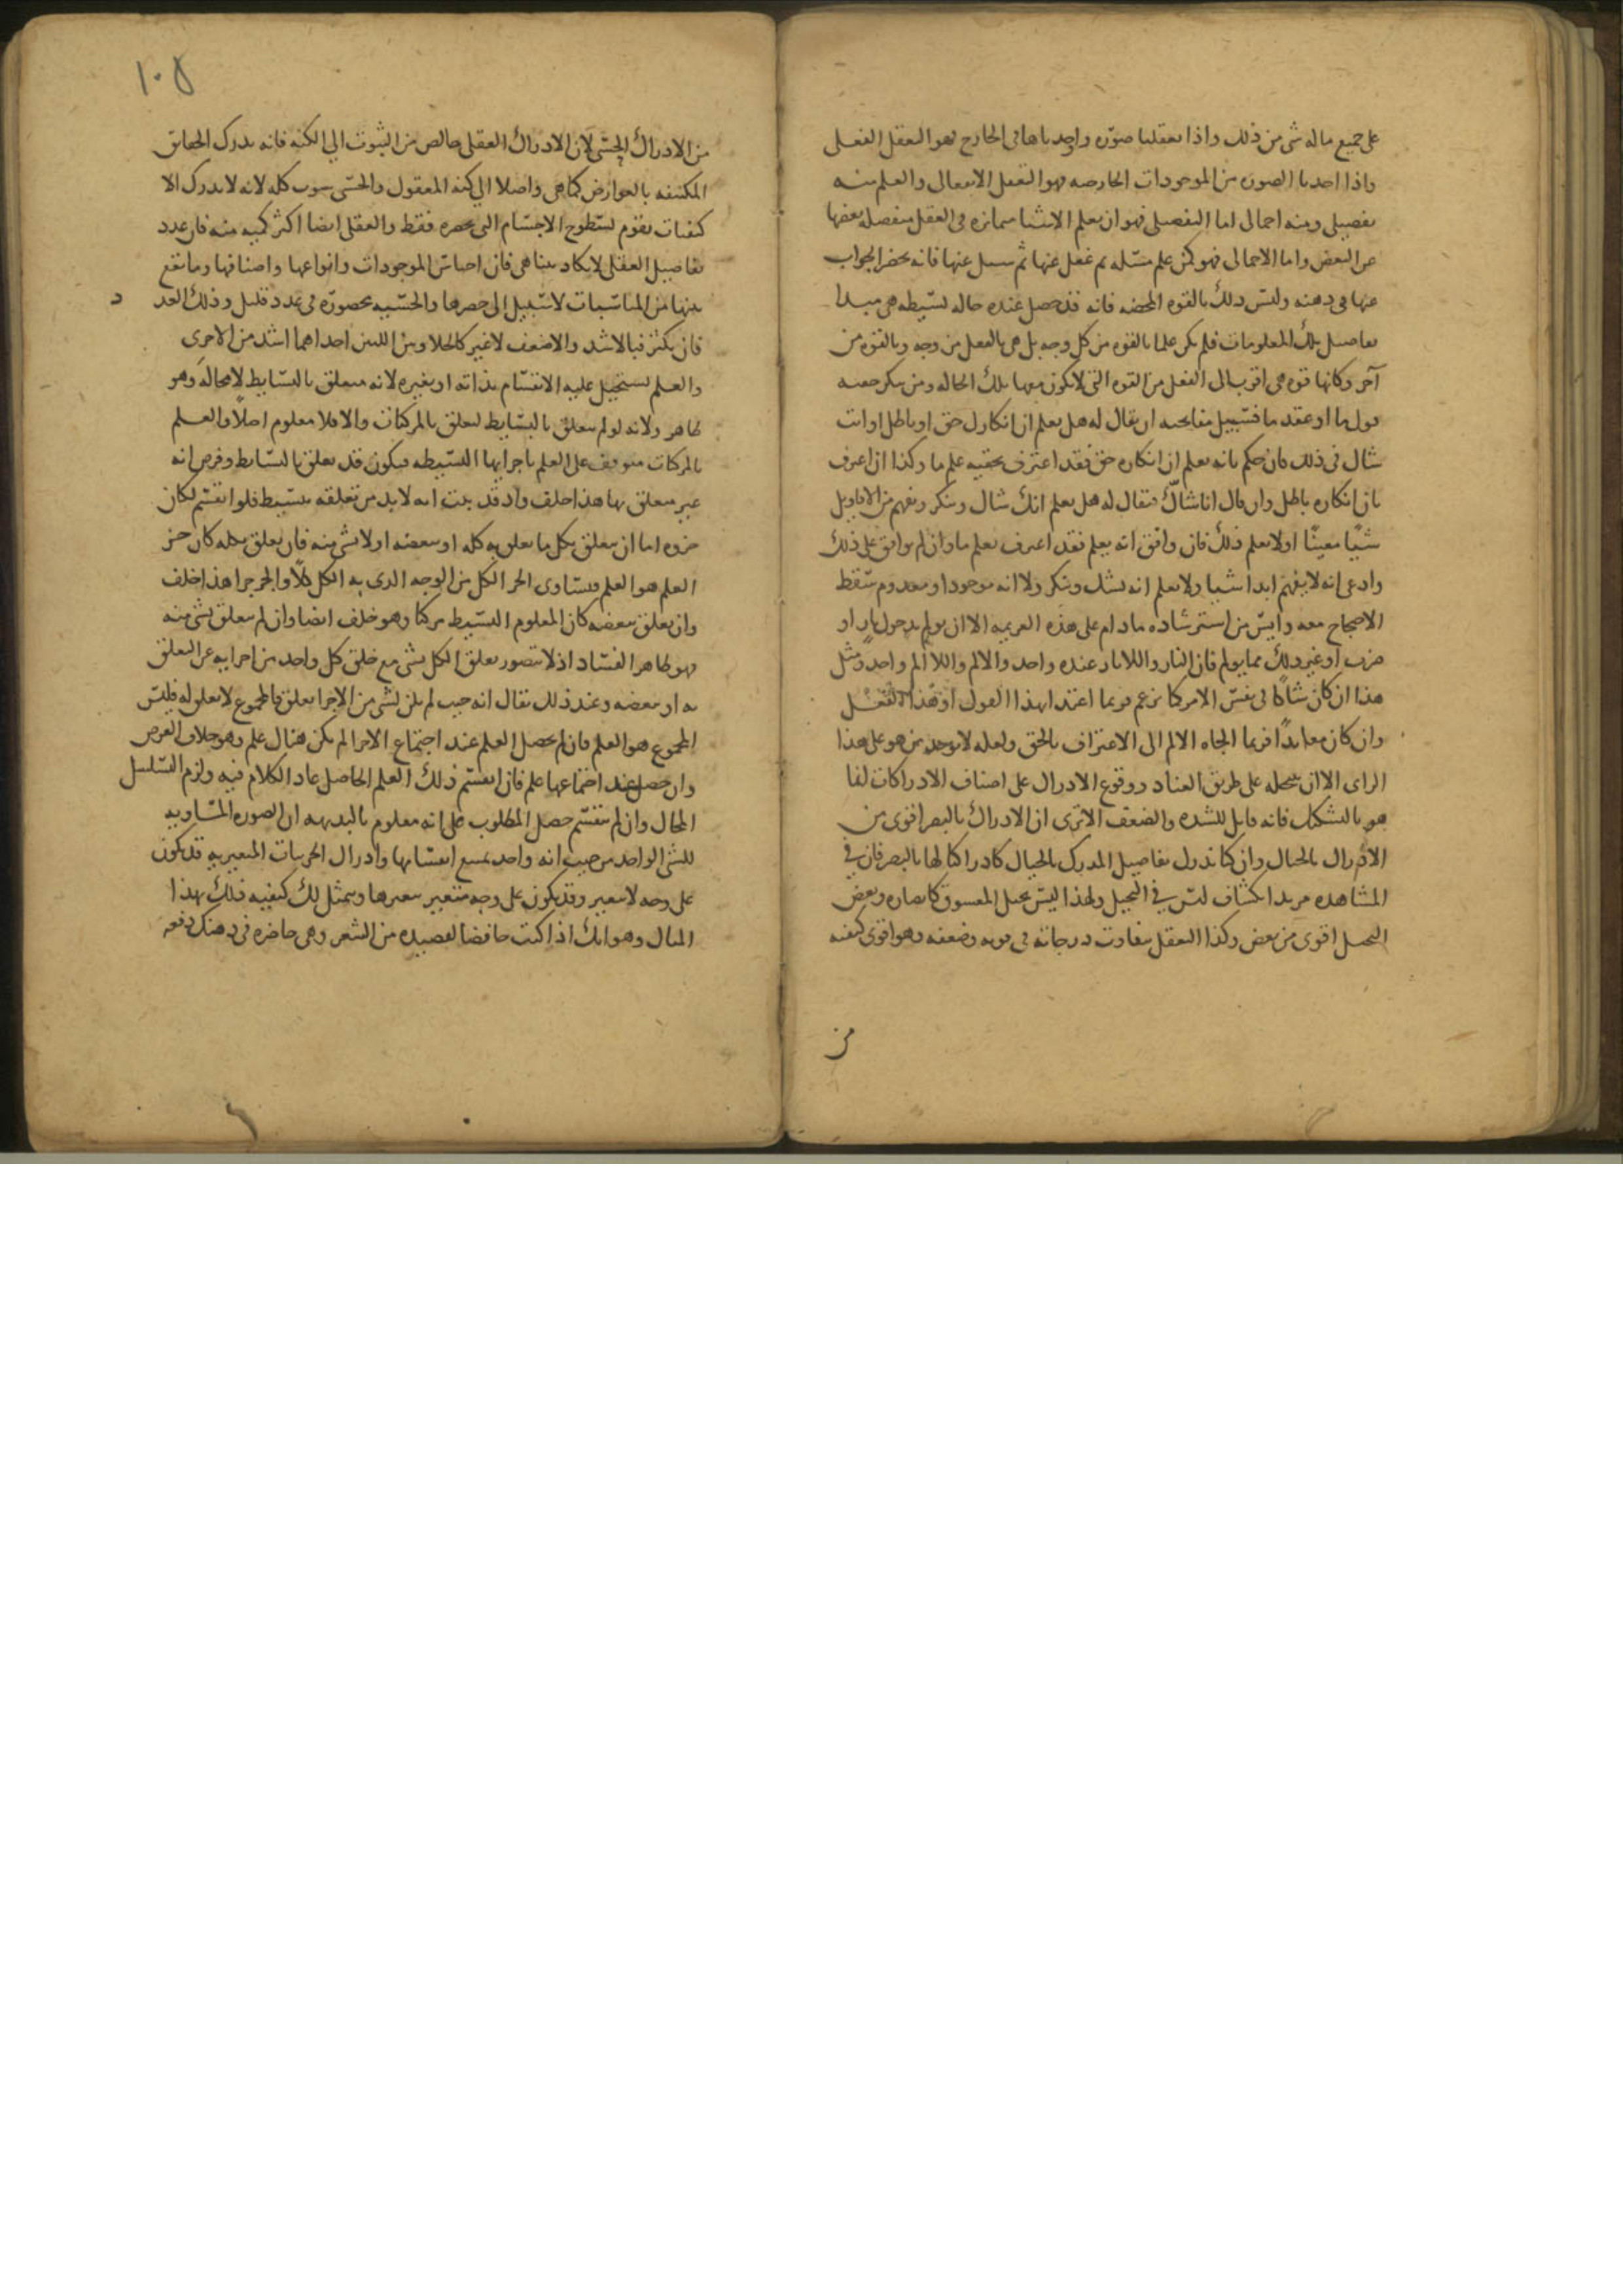 على جميع ماله شى من ذلك واذا تعقلنا صوره واوجدناها فى الخارج فهو العقل الفعلى
واذا اخذنا الصوره من الموجودات الخارجه فهو التعقل الانفعالى والعلم منه
تفصيلى ومنه اجمالى اما التفصيلى فهو ان يعلم الاشيا متمايزه فى العقل منفصله بعضها
عن البعض واما الاجمالى فهو كمن علم مسّله ثم غفل عنها ثم سيل عنها فانه يحضر الجواب
عنها فى ذهنه وليس ذلك بالقوه المحضه فانه قد حصل عنده حاله بسيطه هى مبدا
تفاصيل تلك المعلومات فلم يكن علما بالقوه من كل وجه بل هى بالفعل من وجه وبالقوه من
آخر وكانها قوه هى اقرب الى الفعل من القوه التى لا يكون معها تلك الحاله ومن ينكر حقيه
قول ما او عقد ما فسبيل مفاتحته ان يقال له هل يعلم ان انكارك حق او باطل او انت
شاك فى ذلك فان حكم بانه يعلم ان انكاره حق فقد اعترف بحقيه علم ما وكذا ان اعترف
بان انكاره باطل وان قال انا شاكّ فيقال له هل يعلم انك شاك ومنكر وتفهم من الاقاويل
شيًا معينًا اولا يعلم ذلك فان وافق انه يعلم فقد اعترف بعلم ما وان لم يوافق على ذلك
وادعى انه لا يفهم ابدا شيا ولا يعلم انه يشك وينكر ولا انه موجود او معدوم سقط
الاحتجاج معه وايس من استرشاده مادام على هذه العزيمه الا ان يولم بدخول نار او
ضرب او غير ذلك مما يولم فان النار واللانار عنده واحد والالم واللاالم واحد ومثل
هذا ان كان شاكًا فى نفس الامر كما زعم فربما اعتد بهذا القول او بهذا الفعل
وان كان معاندًا فربما الجاه الالم الى الاعتراف بالحق ولعله لا يوجد من هو على هذا
الراى الا ان ينتحله على طريق العناد ووقوع الادراك على اصناف الادراكات انما
هو بالتشكيك فانه قابل للشده والضعف الا ترى ان الادراك بالبصر اقوى من
الادراك بالخيال وان كنا ندرك تفاصيل المدرك بالخيال كادراكنا لها بالبصر فان فى
المشاهده مزيد انكشاف ليس فى التخيل ولهذا ليس تخيل المعشوق كابصاره وبعض
التخيل اقوى من بعض وكذا التعقل يتفاوت درجاته فى قوته وضعفه وهو اقوى كيفيه
من
١٠٥
من الادراك الحسّى لان الادراك العقلى خالص من الشوب الى الكنه فانه يدرك الحقائق
المكتنفه بالعوارض كما هى واصلا الى كنه المعقول والحسّى شوب كله لانه لا يدرك الا
كيفيات تقوم بسطوح الاجسام التى تحضره فقط والعقلى ايضا اكثر كميه منه فان عدد
تفاصيل العقلى لا يكاد يتناهى فان اجناس الموجودات وانواعها واصنافها وما يقع
بينها من المناسبات لا سبيل الى حصرها والحسّيه محصوره فى عدد قليل وذلك العدد
فان تكثر فبالاشد والاضعف لا غير كالحلاوتين اللتين احداهما اشد من الاخرى
والعلم يستحيل عليه الانقسام بذاته او بغيره لانه متعلق بالبسايط لا محاله وهو
ظاهر ولانه لو لم يتعلق بالبسايط لتعلق بالمركبات والا فلا معلوم اصلًا والعلم
بالمركبات متوقف على العلم باجزايها البسيطه فيكون قد تعلق بالبسايط وفرض انه
غير متعلق بها هذا خلف واذ قد ثبت انه لا بد من تعلقه ببسيط فلو انقسم لكان
جزوه اما ان يتعلق بكل ما تعلق به كله او ببعضه او لا بشى منه فان تعلق بكله كان جز
العلم هو العلم فيساوى الجز الكل من الوجه الذى به الكل كلًا والجز جزا هذا خلف
وان تعلق ببعضه كان المعلوم البسيط مركبا وهو خلف ايضا وان لم يتعلق بشى منه
فهو ظاهر الفساد اذ لا يتصور تعلق الكل بشى مع خلو كل واحد من اجزايه عن التعلق
به او ببعضه وعند ذلك نقال انه حيث لم يكن لشى من الاجزا تعلق فالمجموع لا تعلق له فليس
المجموع هو العلم فان لم يحصل العلم عند اجتماع الاجزا لم يكن هناك علم وهو خلاف الفرض
وان حصل عند اجتماعها علم فان انقسم ذلك العلم الحاصل عاد الكلام فيه ولزم التسلسل
المحال وان لم ينقسم حصل المطلوب على انه معلوم بالبديهه ان الصوره المساويه
للشى الواحد من حيث انه واحد يمتنع انقسامها وادراك الجزيات المتغيره قد يكون
على وجه لا يتغير وقد يكون على وجه متغير بتغيرها ويتمثل لك كيفيه ذلك بهذا
المثال وهو انك اذا كنت حافضا لقصيده من الشعر وهى حاضره فى ذهنك دفعه